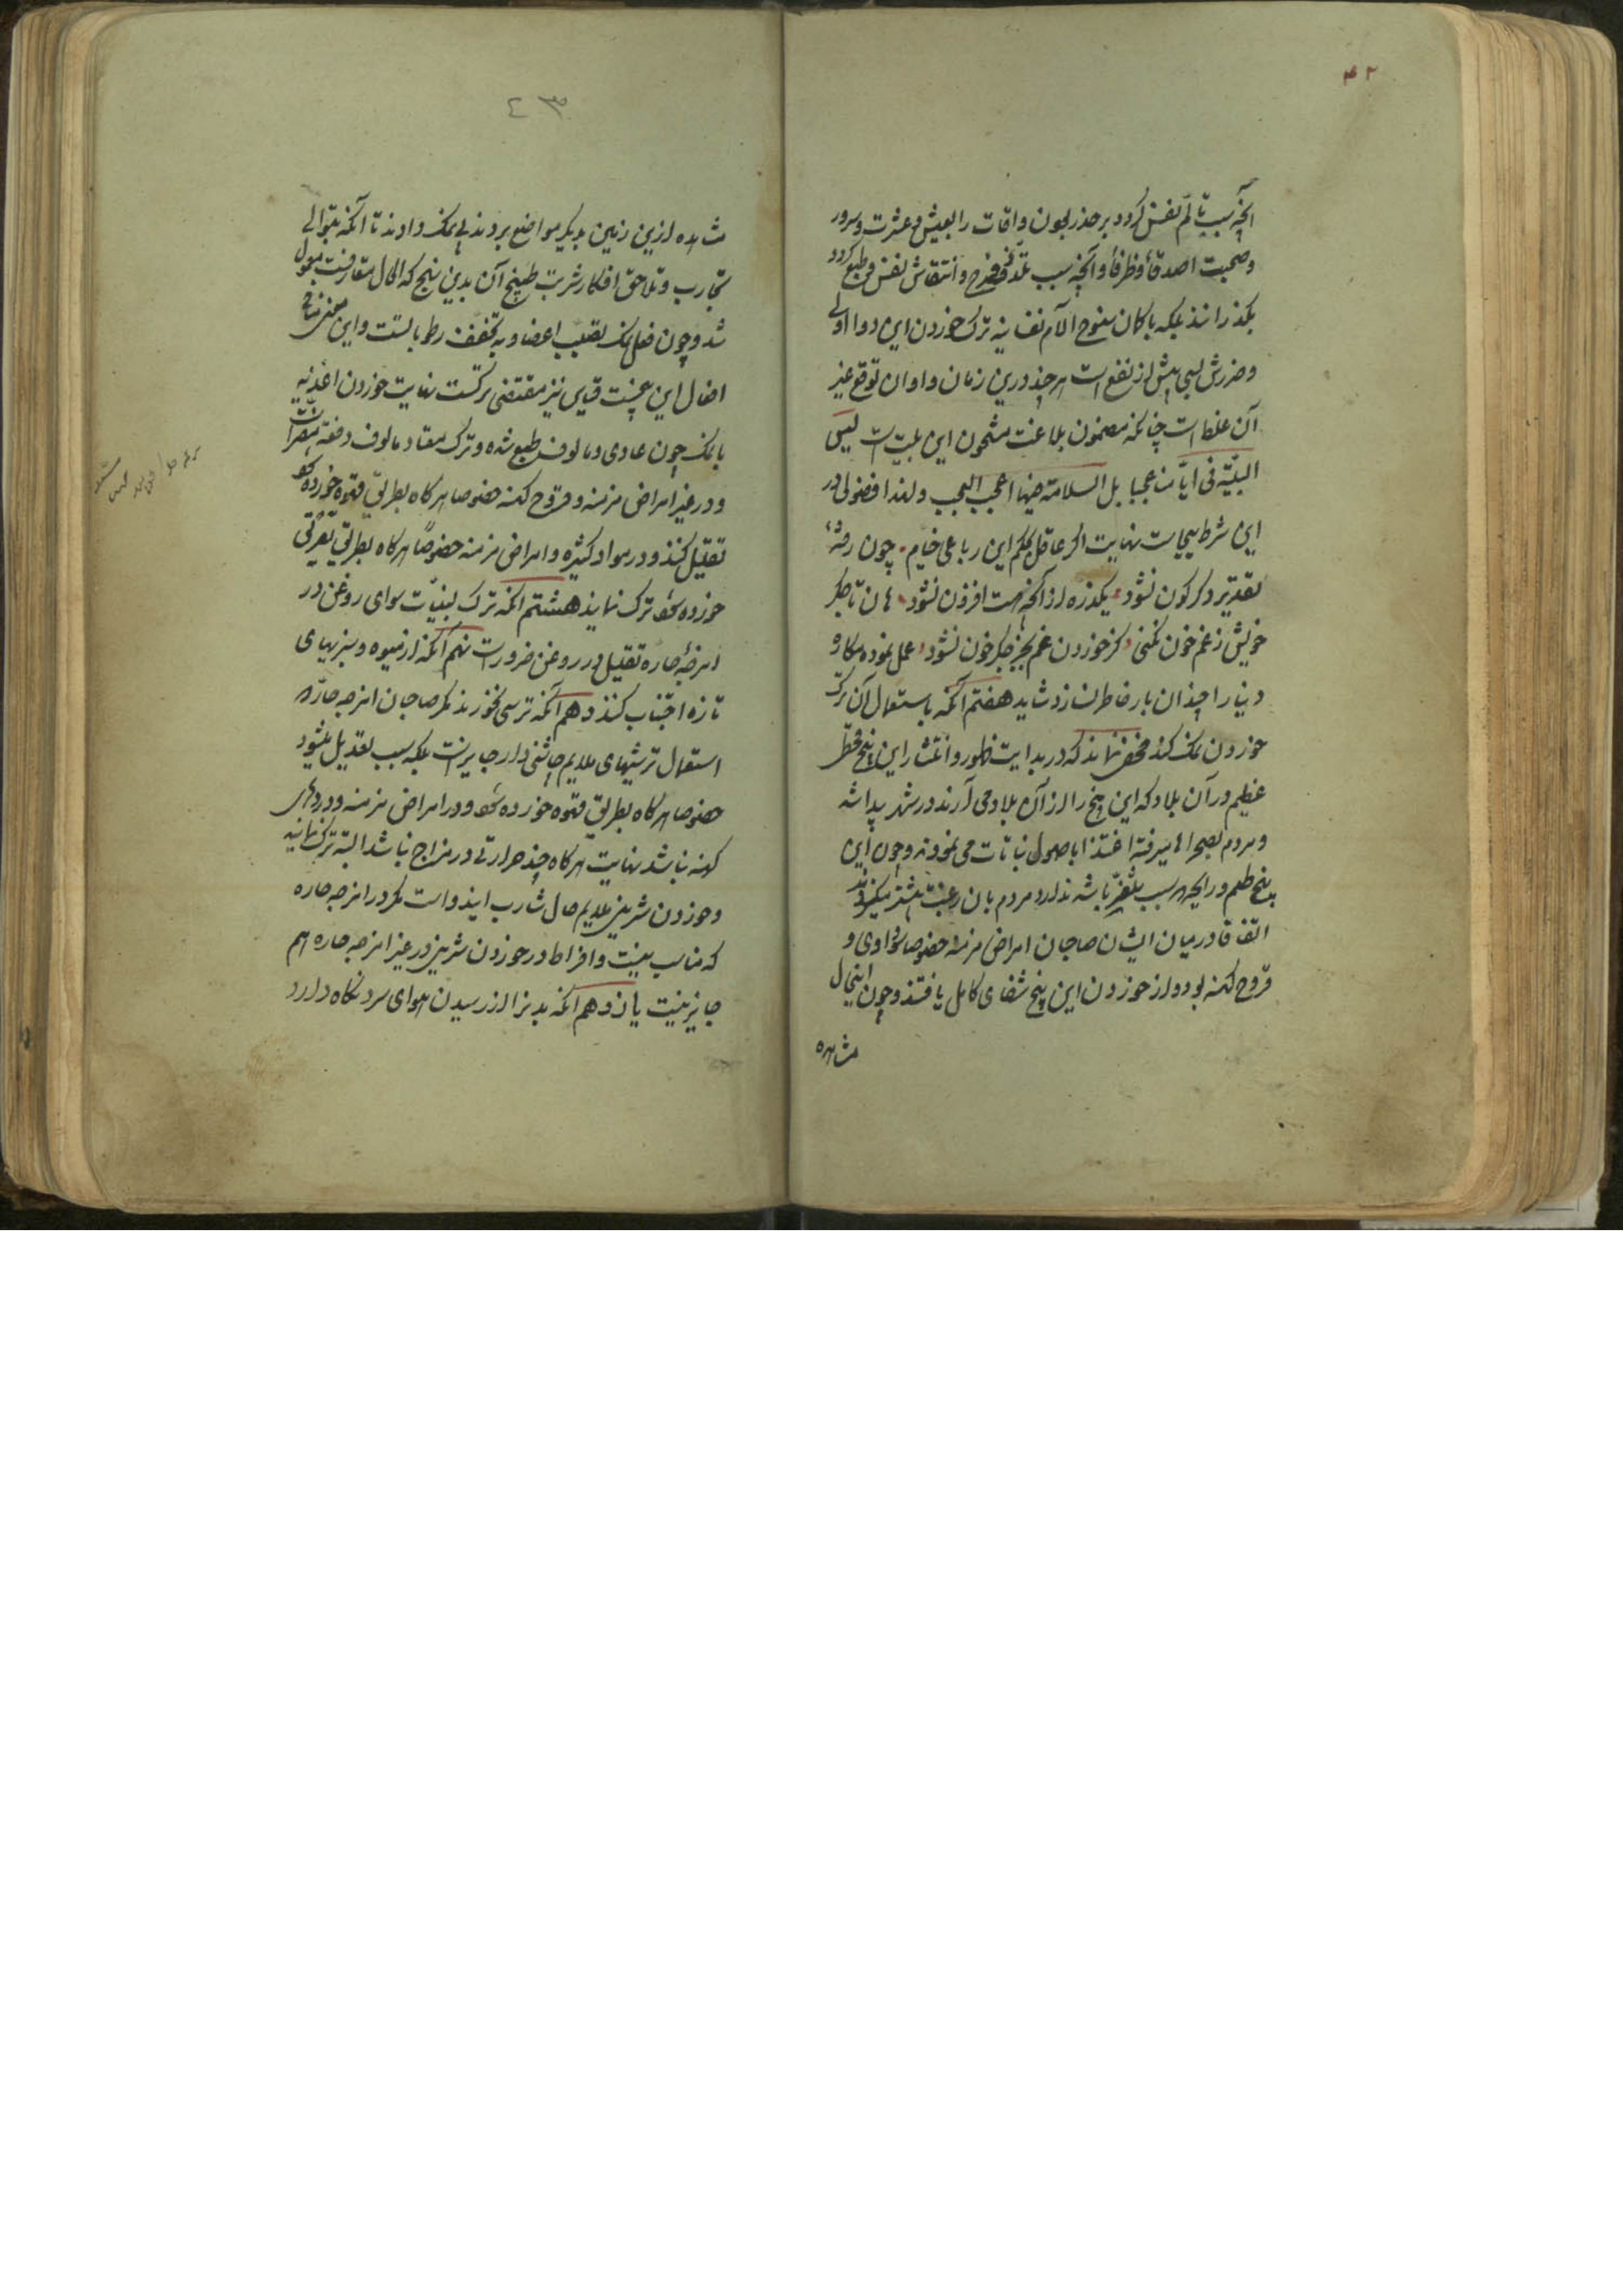 ۴۲
آنچه سبب تألم نفس گردد بر حذر بجون و اوقات را بعیش و عشرت و سرور
و صحبت اصدقا و ظرفا و آنچه سبب تلذذ و فرح و انتقاش نفس و طبع گردد
بگذرانند بلکه با کان سنوح آلام نفسانیه ترک خوردن این دوا اولی
و ضررش بسی بیش از نفع است هر چند درین زمان و اوان توقع غیر
آن غلط است چنانکه مضمون بلاغت مشحون این بلیت است لیس
البلیّة فی ایّامنا عجبا بل السلامة فیها اعجب العجب و لهذا فضولی در
این شرط بیجاست نهایت اگر عاقل بحکم این رباعی خیام چون رفته
تقدیر دگرگون نشود یکذره از آنچه هست افزون نشود هان تا جگر
خویش ز غم خون نکنی کز خوردن غم بجز جگر خون نشود عمل نموده مکاره
دنیا را چندان بار خاطر نسازد شاید هفتم آنکه باستعمال آن ترک
خوردن نمک کند مخفی نماند که در بدایت ظهور و انتشار این بیخ قحط
عظیم در آن بلاد که این بیخ را از آن بلاد می آرند در شهر پیدا شد
و مردم بصحراها میرفته اغتذا باصول نباتات می نمودند و چون این
بیخ طعم و رایحه که سبب تنفر باشد ندارد مردم بان رغبت بیشتر میکردند
اتفاقا در میان ایشان صاحبان امراض مزمنه خصوصا سوداوی و
قروح کهنه بود و از خوردن این بیخ شفای کامل یافتند و چون اینحال
مشاهده
۴۳
مشاهده ازین زمین بدیگر مواضع بردند بی نمک دادند تا آنکه بتوالی
تجارب و تلاحق افکار شربت طبیخ آن بدین نهج که الحال متعارفست معمول
شد و چون فعل نمک تصلیب اعضا و تجفیف رطوباتست و این معنی منافی
افعال این بیخست قیاس نیز مقتضی ترکست نهایت خوردن اغذیه
با نمک چون عادی و مالوف طبع شده و ترک معتاد و مالوف دفعة مضر است
و در غیر امراض مزمنه و قروح کهنه خصوصا هرگاه بطریق قهوه خورده شود
تقلیل کنند و در مواد کثیره و امراض مزمنه خصوصا هرگاه بطریق تعریق
خورده شود ترک نمایند هشتم آنکه ترک لبنیات سوای روغن در
امزجه حاره تقلیل در روغن ضرور است نهم آنکه از میوه و سبزیهای
تازه اجتناب کنند دهم آنکه ترشی نخورند مگر صاحبان امزجه حارّه
استعمال ترشیهای ملایم چاشنی دار جایز است بلکه سبب تعدیل میشود
خصوصا هرگاه بطریق قهوه خورده شود و در امراض مزمنه و دردهای
کهنه نباشد نهایت هرگاه چند حرارتی در مزاج باشد البته ترک نمایند
و خوردن شیرینی ملایم حال شارب این دواست مگر در امزجه حاره
که مناسب نیست و افراط در خوردن شیرینی در غیر امزجه حاره هم
جایز نیست یازدهم آنکه بدن را از رسیدن هوای سرد نگاه دارد